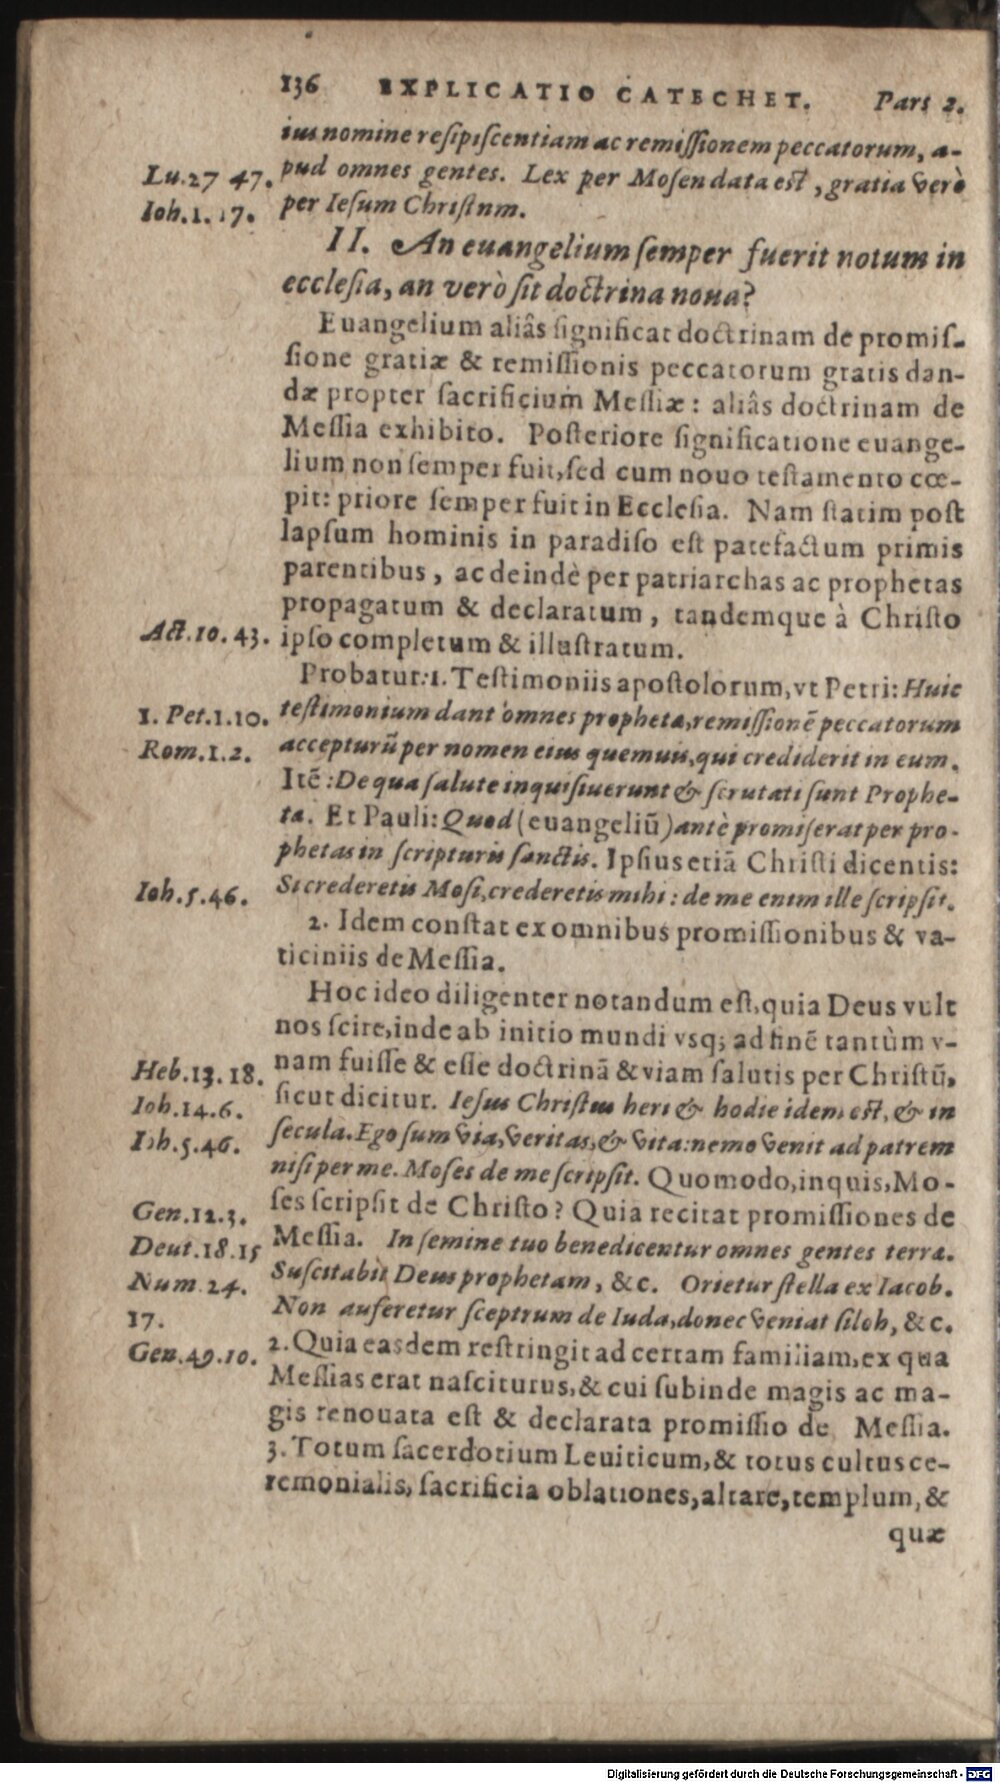 136 EXPLICATIO CATECHET. Part 2.
ius nomine resipiscentiam ac remissionem peccatorum, a-
Lu.27 47. pud omnes gentes. Lex per Mosen data est, gratia verò
Ioh.1.17. per Iesum Christnm.
II. An euangelium semper fuerit notum in
ecclesia, an verò sit doctrina noua?
Euangelium aliâs significat doctrinam de promis-
sione gratiæ & remissionis peccatorum gratis dan-
dæ propter sacrificium Messiæ: aliâs doctrinam de
Messia exhibito. Posteriore significatione euange-
lium non semper fuit, sed cum nouo testamento cœ-
pit: priore semper fuit in Ecclesia. Nam statim post
lapsum hominis in paradiso est patefactum primis
parentibus, ac deindè per patriarchas ac prophetas
propagatum & declaratum, tandemque à Christo
Act.10.43. ipso completum & illustratum.
Probatur: 1. Testimoniis apostolorum, vt Petri: Huic
1. Pet.1.10. testimonium dant omnes propheta, remissionē peccatorum
Rom.1.2. accepturū per nomen eius quemuis, qui crediderit in eum.
Itē: De qua salute inquisiuerunt & scrutati sunt Prophe-
ta. Et Pauli: Quod (euangeliū) antè promiserat per pro-
phetas in scripturis sanctis. Ipsius etiā Christi dicentis:
Ioh.5.46. Si crederetis Mosi, crederetis mihi: de me enim ille scripsit.
2. Idem constat ex omnibus promissionibus & va-
ticiniis de Messia.
Hoc ideo diligenter notandum est, quia Deus vult
nos scire, inde ab initio mundi vsq; ad finē tantùm v-
Heb.13.18. nam fuisse & esse doctrinā & viam salutis per Christū,
Ioh.14.6. sicut dicitur. Iesus Christus heri & hodie idem est, & in
Ioh.5.46. secula. Ego sum via, veritas, & vita: nemo venit ad patrem
nisi per me. Moses de me scripsit. Quomodo, inquis, Mo-
Gen.12.3. ses scripsit de Christo? Quia recitat promissiones de
Deut.18.15 Messia. In semine tuo benedicentur omnes gentes terra.
Num.24. Suscitabit Deus prophetam, &c. Orietur stella ex Iacob.
17. Non auferetur sceptrum de Iuda, donec veniat siloh, &c.
Gen.49.10. 2. Quia easdem restringit ad certam familiam, ex qua
Messias erat nasciturus, & cui subinde magis ac ma-
gis renouata est & declarata promissio de Messia.
3. Totum sacerdotium Leuiticum, & totus cultus ce-
remonialis, sacrificia oblationes, altare, templum, &
quæ
Digitalisierung gefördert durch die Deutsche Forschungsgemeinschaft - DFG